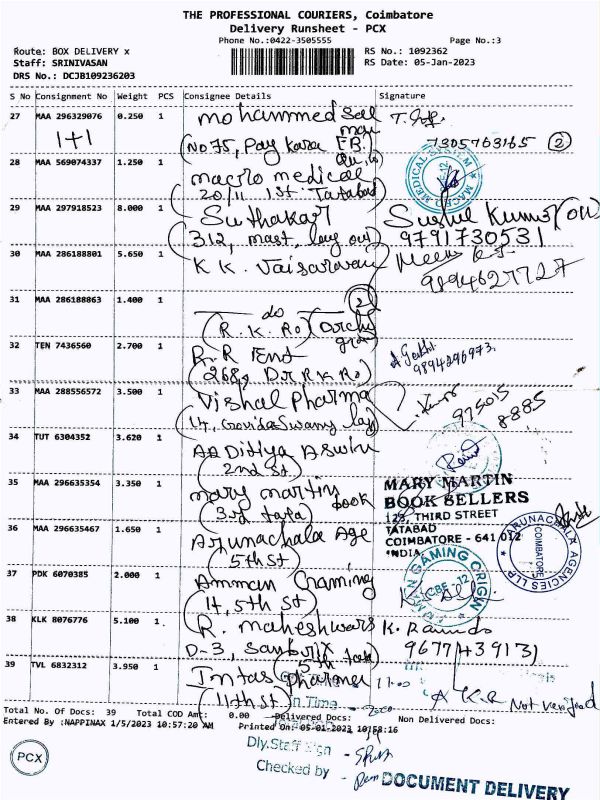 THE PROFESSIONAL COURIERS, Coimbatore
Delivery Runsheet - PCX
Phone No.:0422-3505555
Page No.:3
Route: BOX DELIVERY x
RS No.: 1092362
Staff: SRINIVASAN
RS Date: 05-Jan-2023
DRS No.: DCJB109236203
S No Consignment No Weight PCS Consignee Details Signature
27 MAA 296329076 0.250 1 mohammed
1+1
(No 75,
7305763165 (2)
28 MAA 569074337 1.250 1 macro medical
MACRO MEDICAL SYSTEM
20/11 1st Tatabad
29 MAA 297918523 8.000 1 Suthakar Sushil Kumar
(312, mast, lay out) 9791730531
30 MAA 286188801 5.650 1 K K Jaisaravan Meena
9894627727
31 MAA 286188863 1.400 1 do (2)
(R. K. Ro)
32 TEN 7436560 2.700 1 R.R Ent
9894296973
(268, D R R K Ro)
33 MAA 288556572 3.500 1 Vishal Pharma
(14, Govinda Swamy lay)
975015
8885
34 TUT 6304352 3.620 1 AA Dittya Aswin
(2nd St)
35 MAA 296635354 3.350 1 mary martin book
(3rd tata)
MARY MARTIN
BOOK SELLERS
THIRD STREET
TATABAD
COIMBATORE - 641 012
INDIA
36 MAA 296635467 1.650 1 Arunachala Age
(5th St)
ARUNACHALA AGENCIES LLP
COIMBATORE
37 PDK 6070385 2.000 1 Amman Gaming
(14, 5th St)
GAMING ORIGIN
CBE - 12
38 KLK 8076776 5.100 1 R. maheshwars K.
D-3, (5th tata)
9677439131
39 TVL 6832312 3.950 1 Intas Pharma
(11th St)
Not verified
In Time
Total No. Of Docs: 39 Total COD Amt: 0.00 Delivered Docs: Non Delivered Docs:
Entered By :NAPPINAX 1/5/2023 10:57:20 AM Printed On: 05-01-2023 10:58:16
Dly.Staff Sign
Checked by
PCX
DOCUMENT DELIVERY